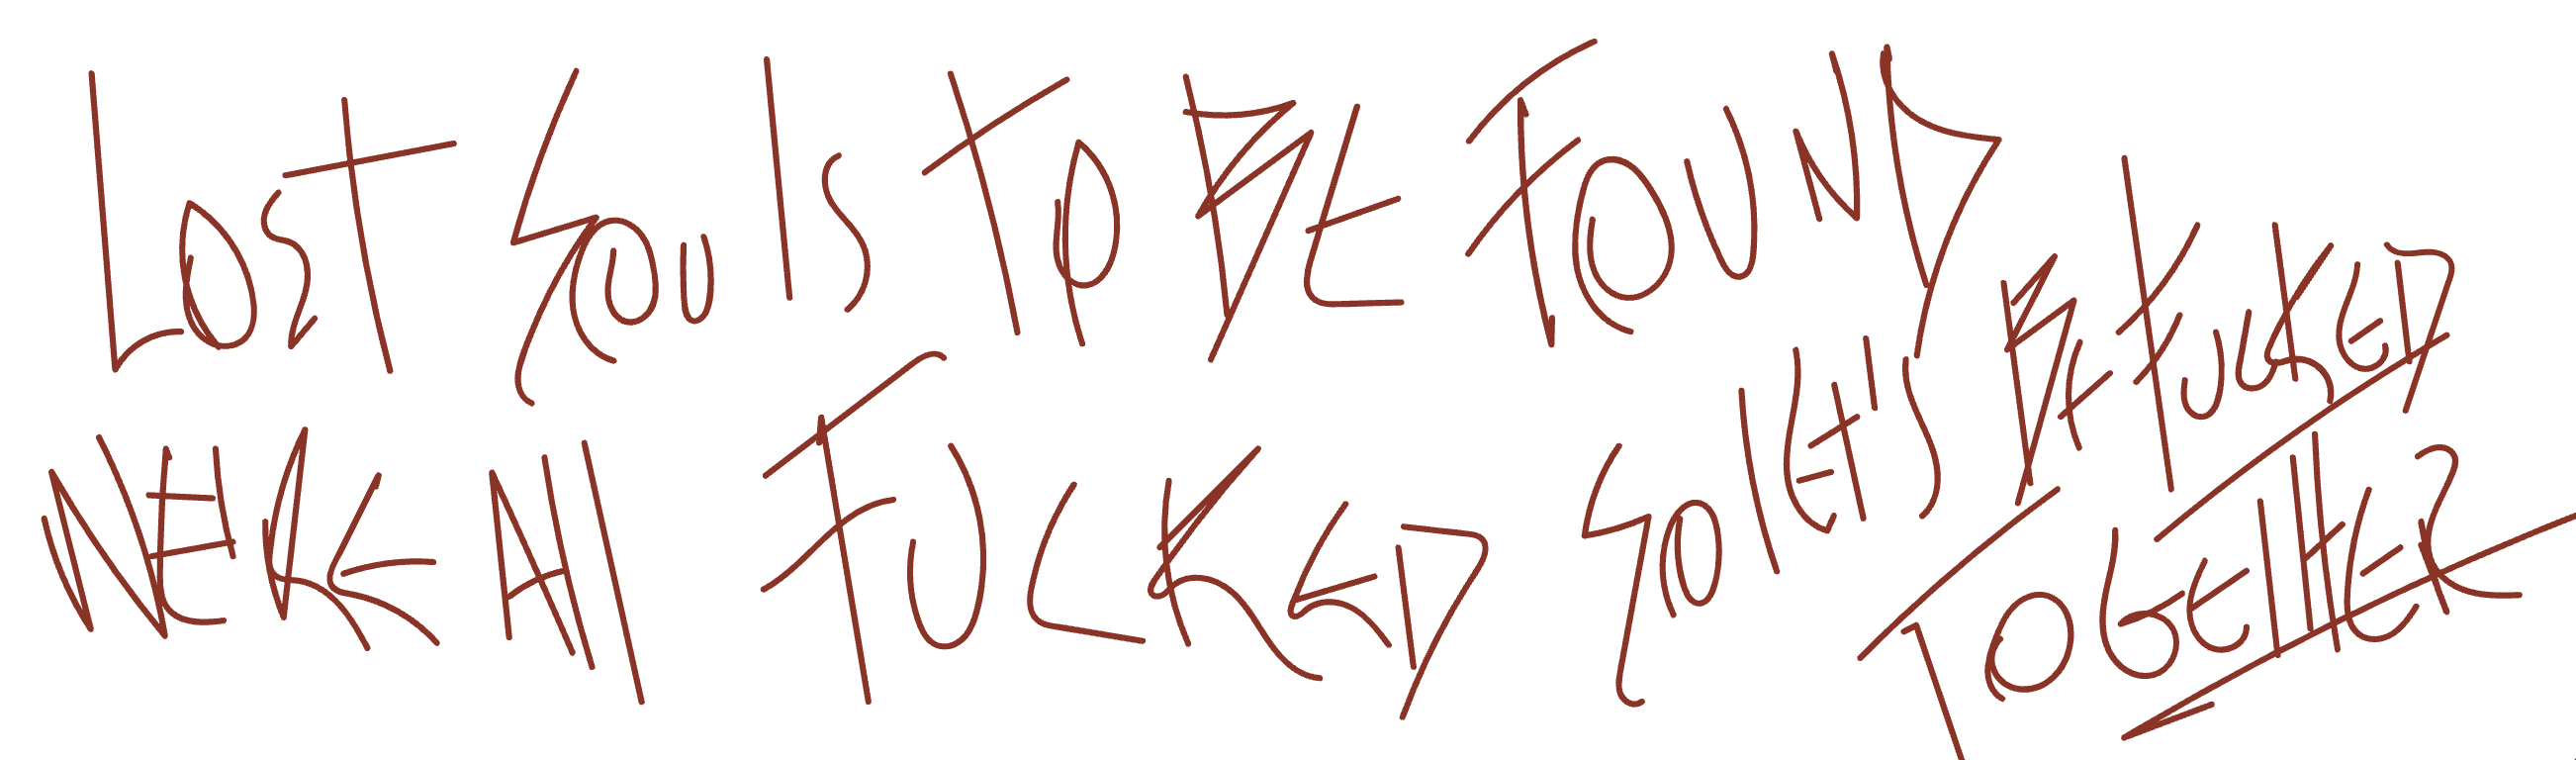 LOST SOU IS TO BE FOUND
WE'RE All FUCKED SO lET'S BE FUCKED
TOGETHER